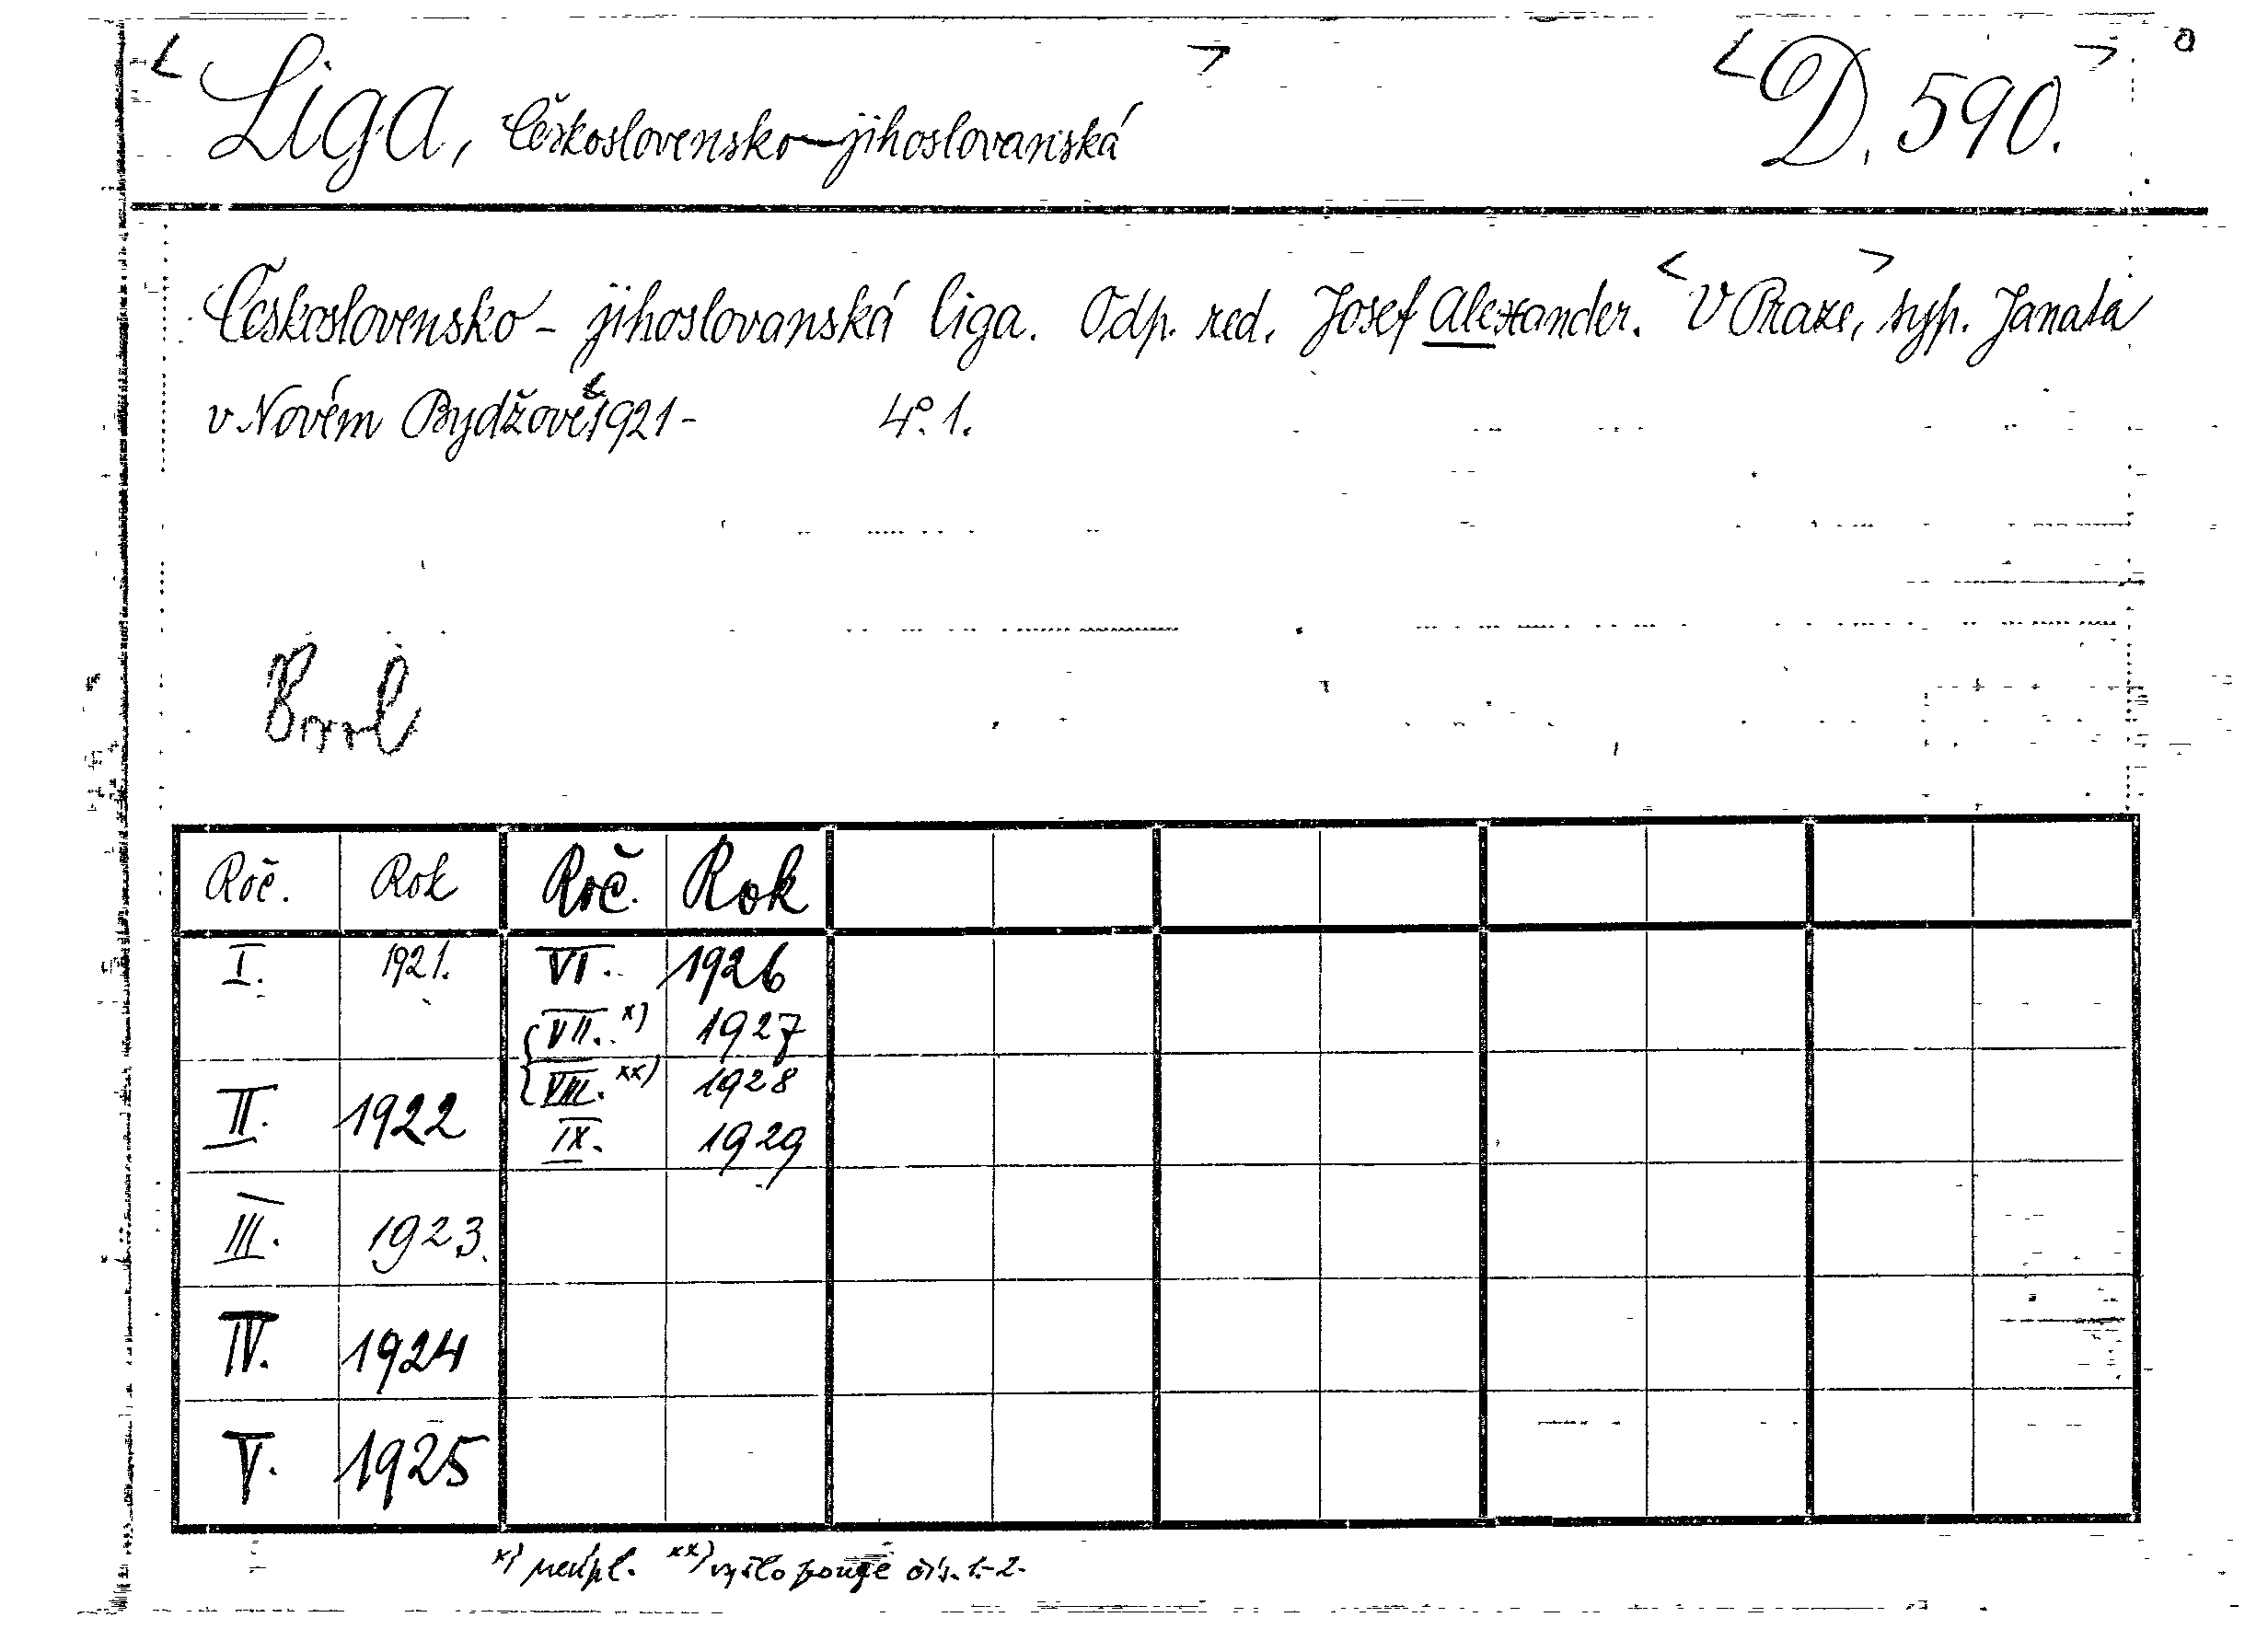 < Liga, Československo-jihoslovanská > < D. 590. >
Československo - jihoslovanská liga. Odp. red. Josef Alexander. < V Praze, > typ. Janata
v Novém Bydžově < 1921 - 4° 1.
Roč. Rok Roč. Rok
I. 1921. VI. 1926
VII. x) 1927
II. 1922 VIII. xx) 1928
IX. 1929
III. 1923.
IV. 1924
V. 1925
x) neúpl. xx) vyšlo pouze čís. 1.-2.